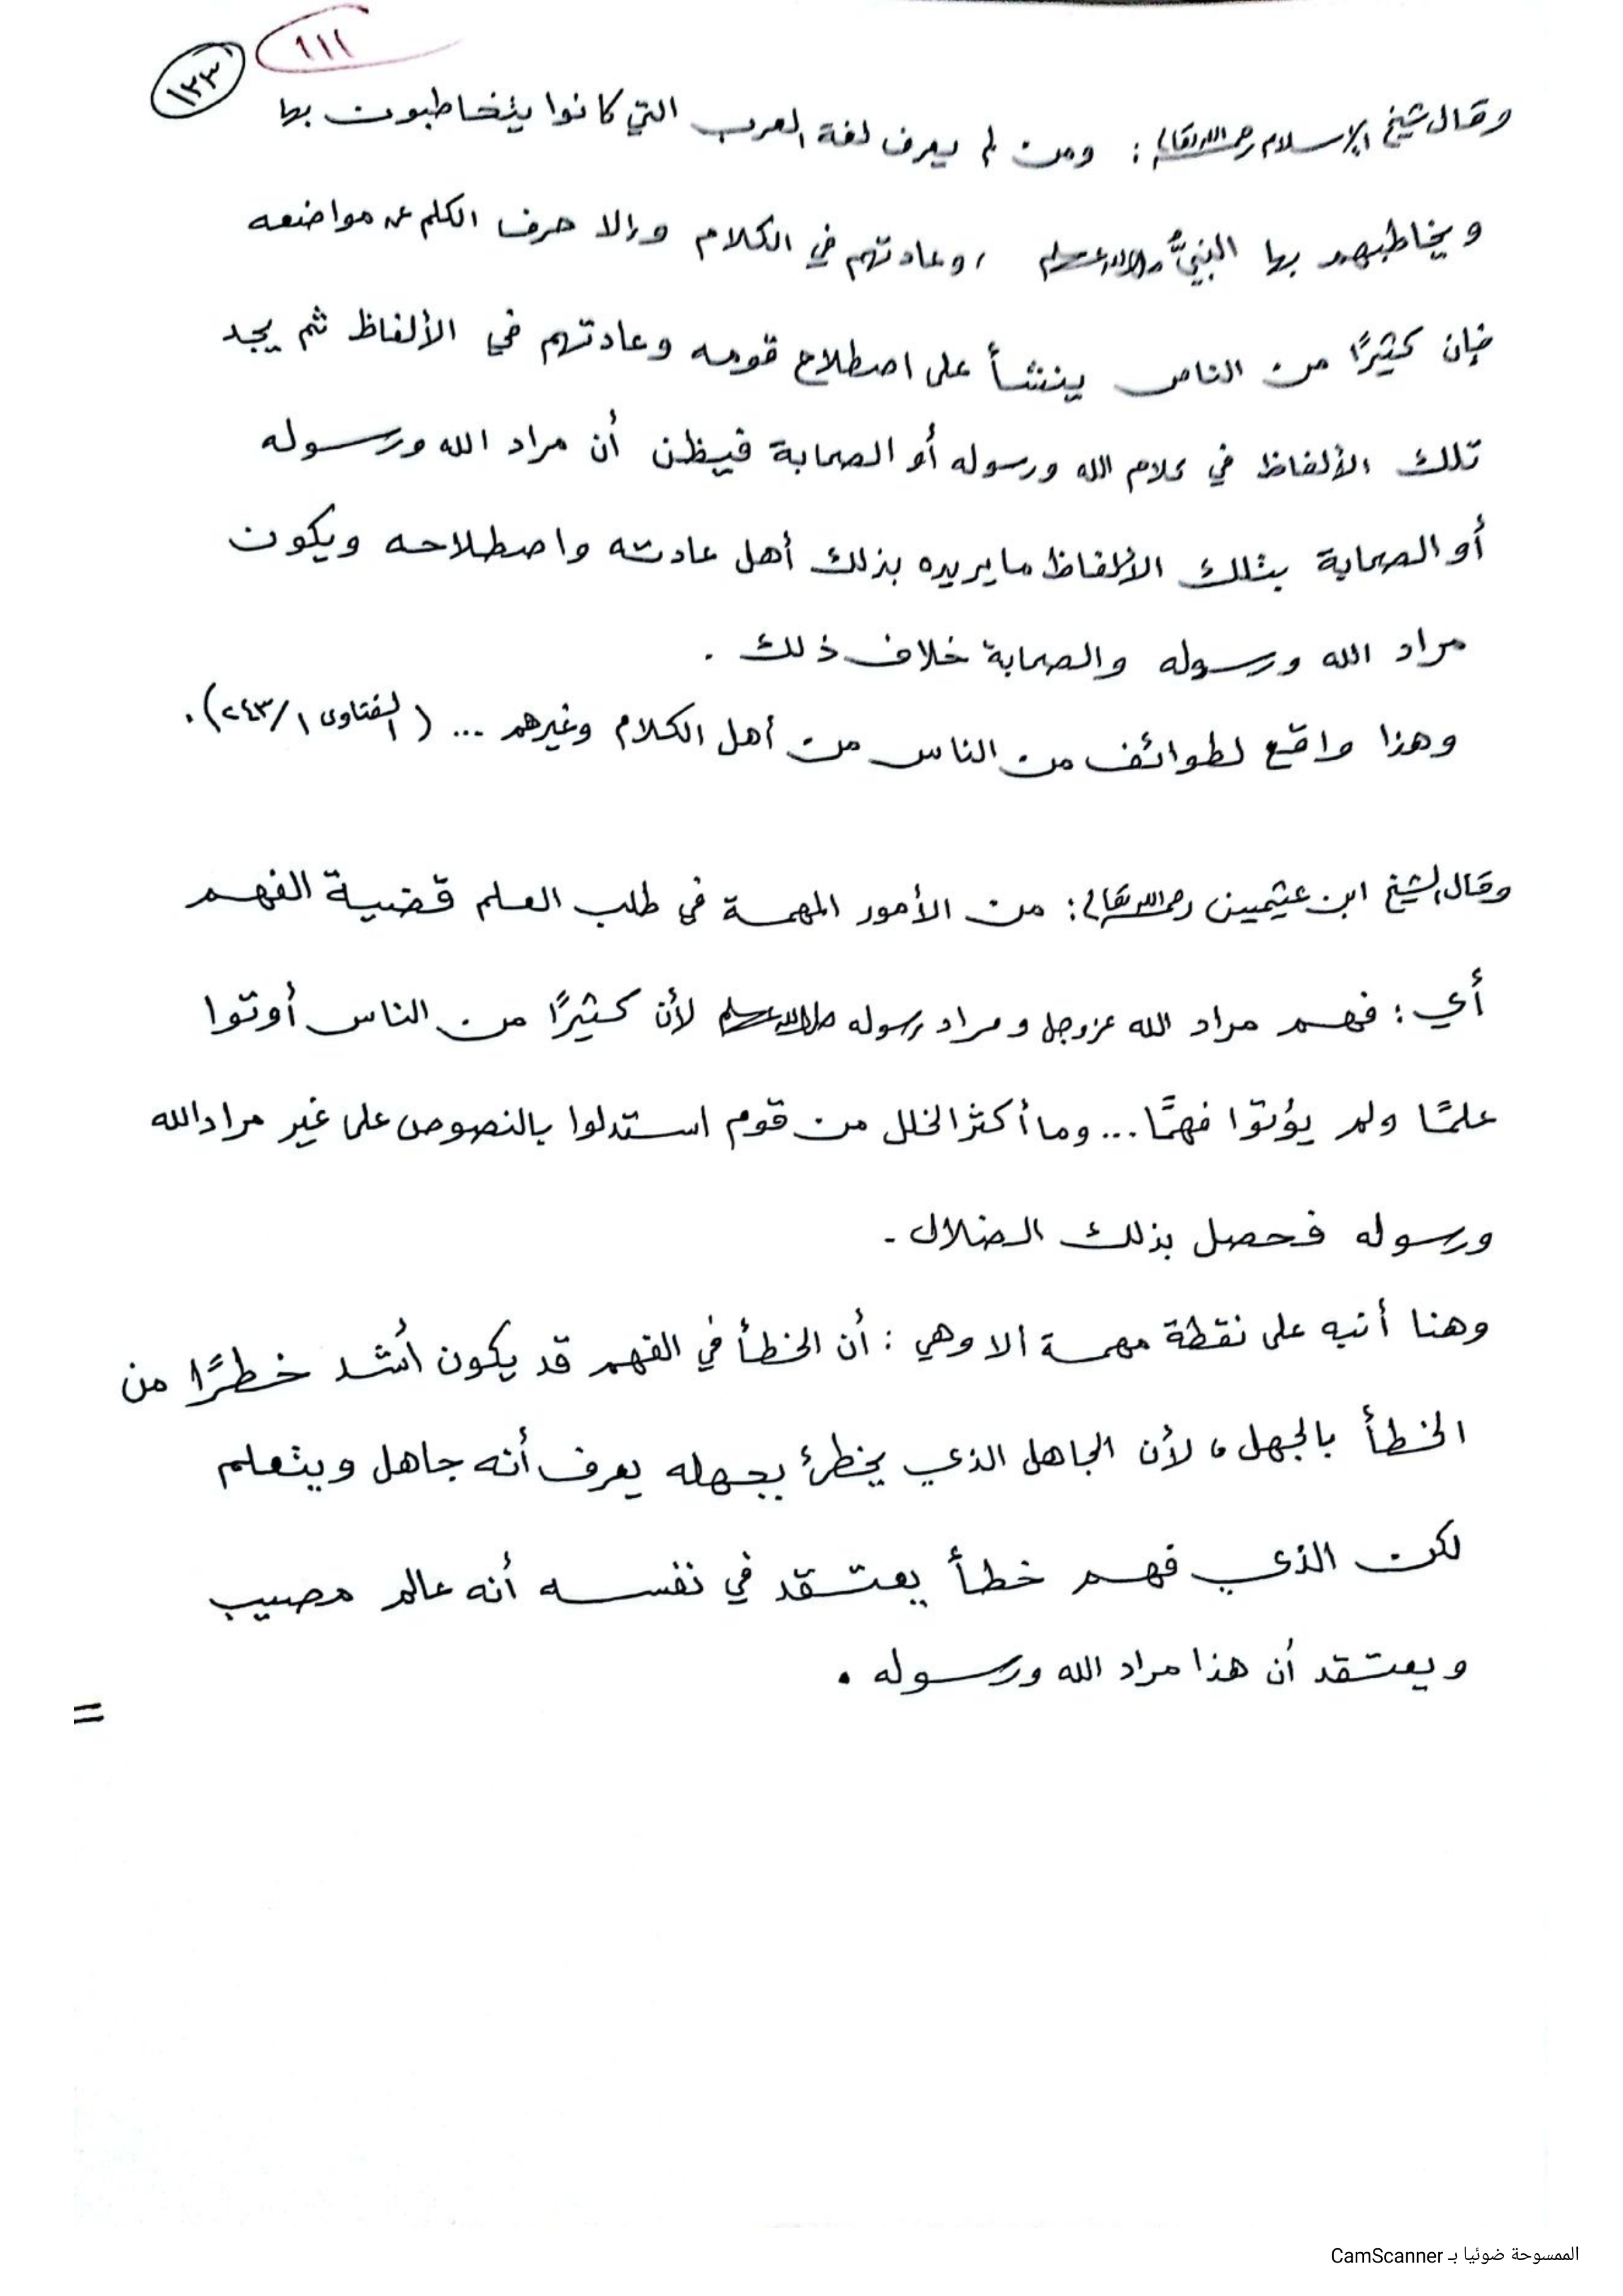 ١١١
١٣٣
وقال شيخ الإسلام رحمه الله تعالى : ومن لم يعرف لغة العرب التي كانوا يتخاطبون بها
ويخاطبهم بها النبيُّ صلى الله عليه وسلم ، وعادتهم في الكلام وإلا حرف الكلم عن مواضعه
فإن كثيرًا من الناس ينشأ على اصطلاح قومه وعادتهم في الألفاظ ثم يجد
تلك الألفاظ في كلام الله ورسوله أو الصحابة فيظن أن مراد الله ورسوله
أو الصحابة بتلك الألفاظ ما يريده بذلك أهل عادته واصطلاحه ويكون
مراد الله ورسوله والصحابة خلاف ذلك .
وهذا واقع لطوائف من الناس من أهل الكلام وغيرهم ... ( الفتاوى ١/٢٤٣) .
وقال الشيخ ابن عثيمين رحمه الله تعالى : من الأمور المهمة في طلب العلم قضية الفهم
أي : فهم مراد الله عزوجل ومراد رسوله صلى الله عليه وسلم لأن كثيرًا من الناس أوتوا
علمًا ولم يؤتوا فهمًا... وما أكثر الخلل من قوم استدلوا بالنصوص على غير مراد الله
ورسوله فحصل بذلك الضلال .
وهنا أنبه على نقطة مهمة ألا وهي : أن الخطأ في الفهم قد يكون أشد خطرًا من
الخطأ بالجهل ، لأن الجاهل الذي يخطئ بجهله يعرف أنه جاهل ويتعلم
لكن الذي فهم خطأ يعتقد في نفسه أنه عالم مصيب
ويعتقد أن هذا مراد الله ورسوله .
=
الممسوحة ضوئيا بـ CamScanner